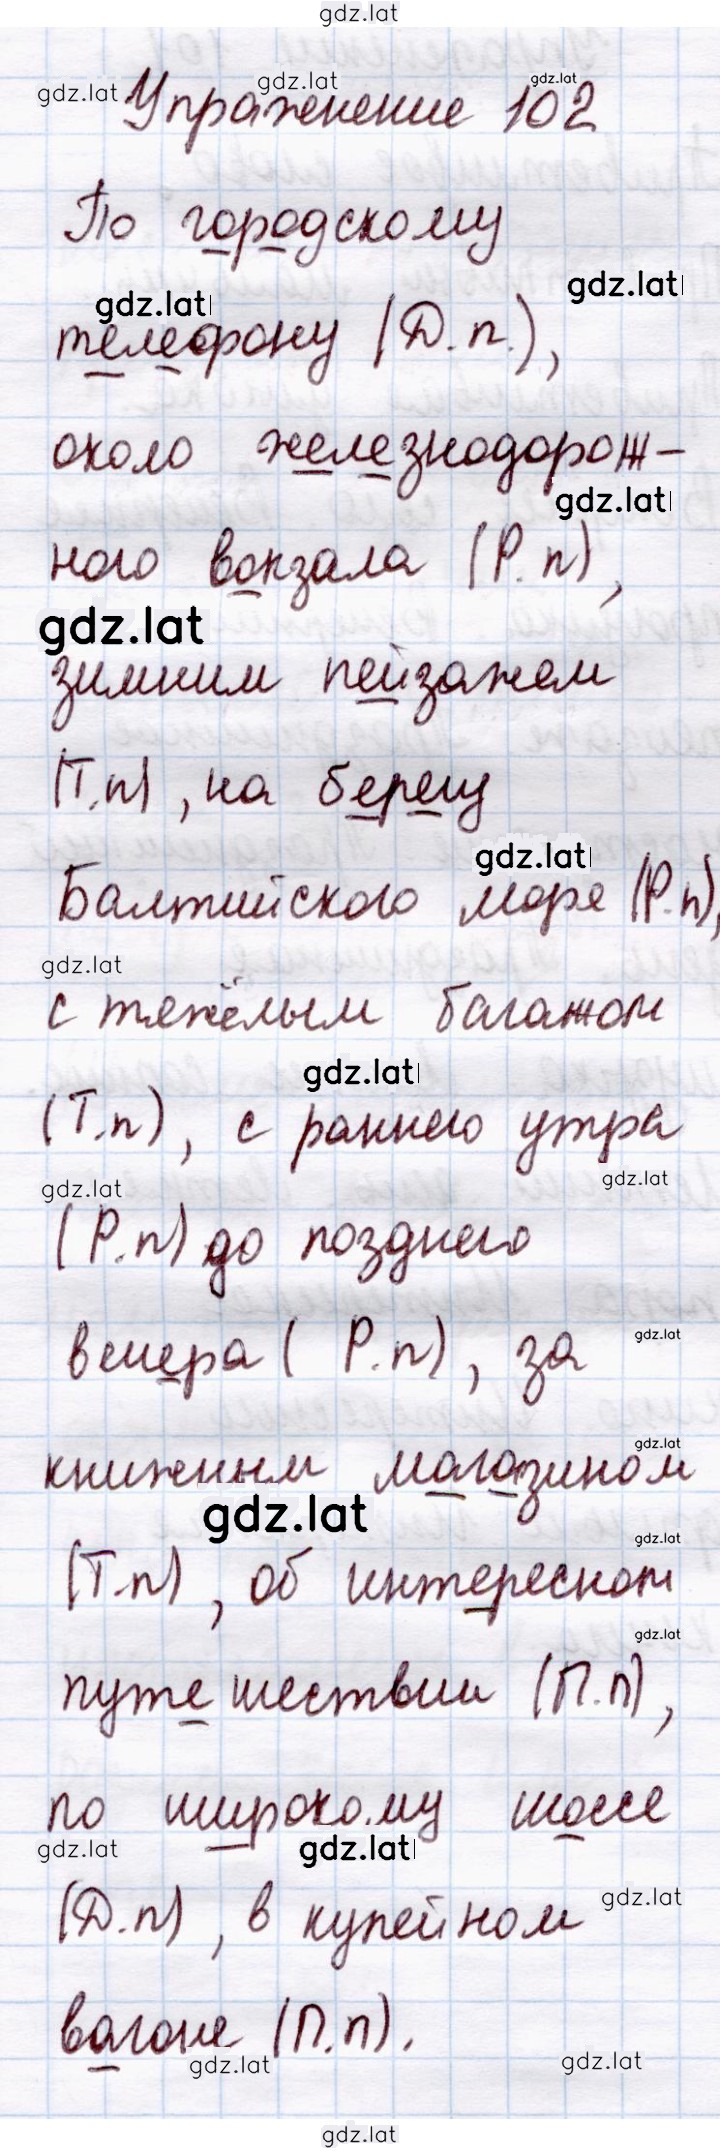 gdz.lat
gdz.lat gdz.lat gdz.lat
Упражнение 102
По городскому
gdz.lat gdz.lat
телефону (Д.п.),
около железнодорож-
gdz.lat
ного вокзала (Р.п),
gdz.lat
зимним пейзажем
(Т.п), на берегу
gdz.lat
Балтийского моря (Р.п),
gdz.lat
с тяжёлым багажом
gdz.lat
(Т.п), с раннего утра
gdz.lat gdz.lat
(Р.п) до позднего
gdz.lat
вечера (Р.п), за
gdz.lat
книжным магазином
gdz.lat
gdz.lat
(Т.п), об интересном
gdz.lat
путешествии (П.п),
по широкому шоссе
gdz.lat gdz.lat
gdz.lat
(Д.п), в купейном
вагоне (П.п).
gdz.lat gdz.lat
gdz.lat